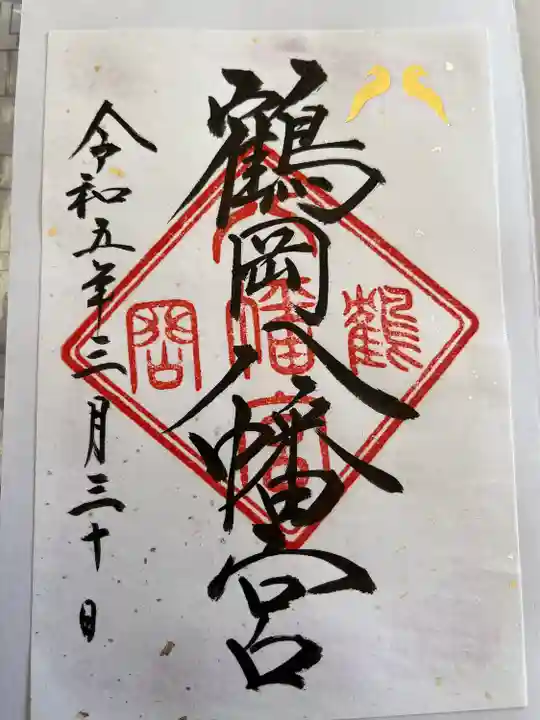 鶴岡八幡宮
令和五年三月三十日
鶴
八幡宮
岡